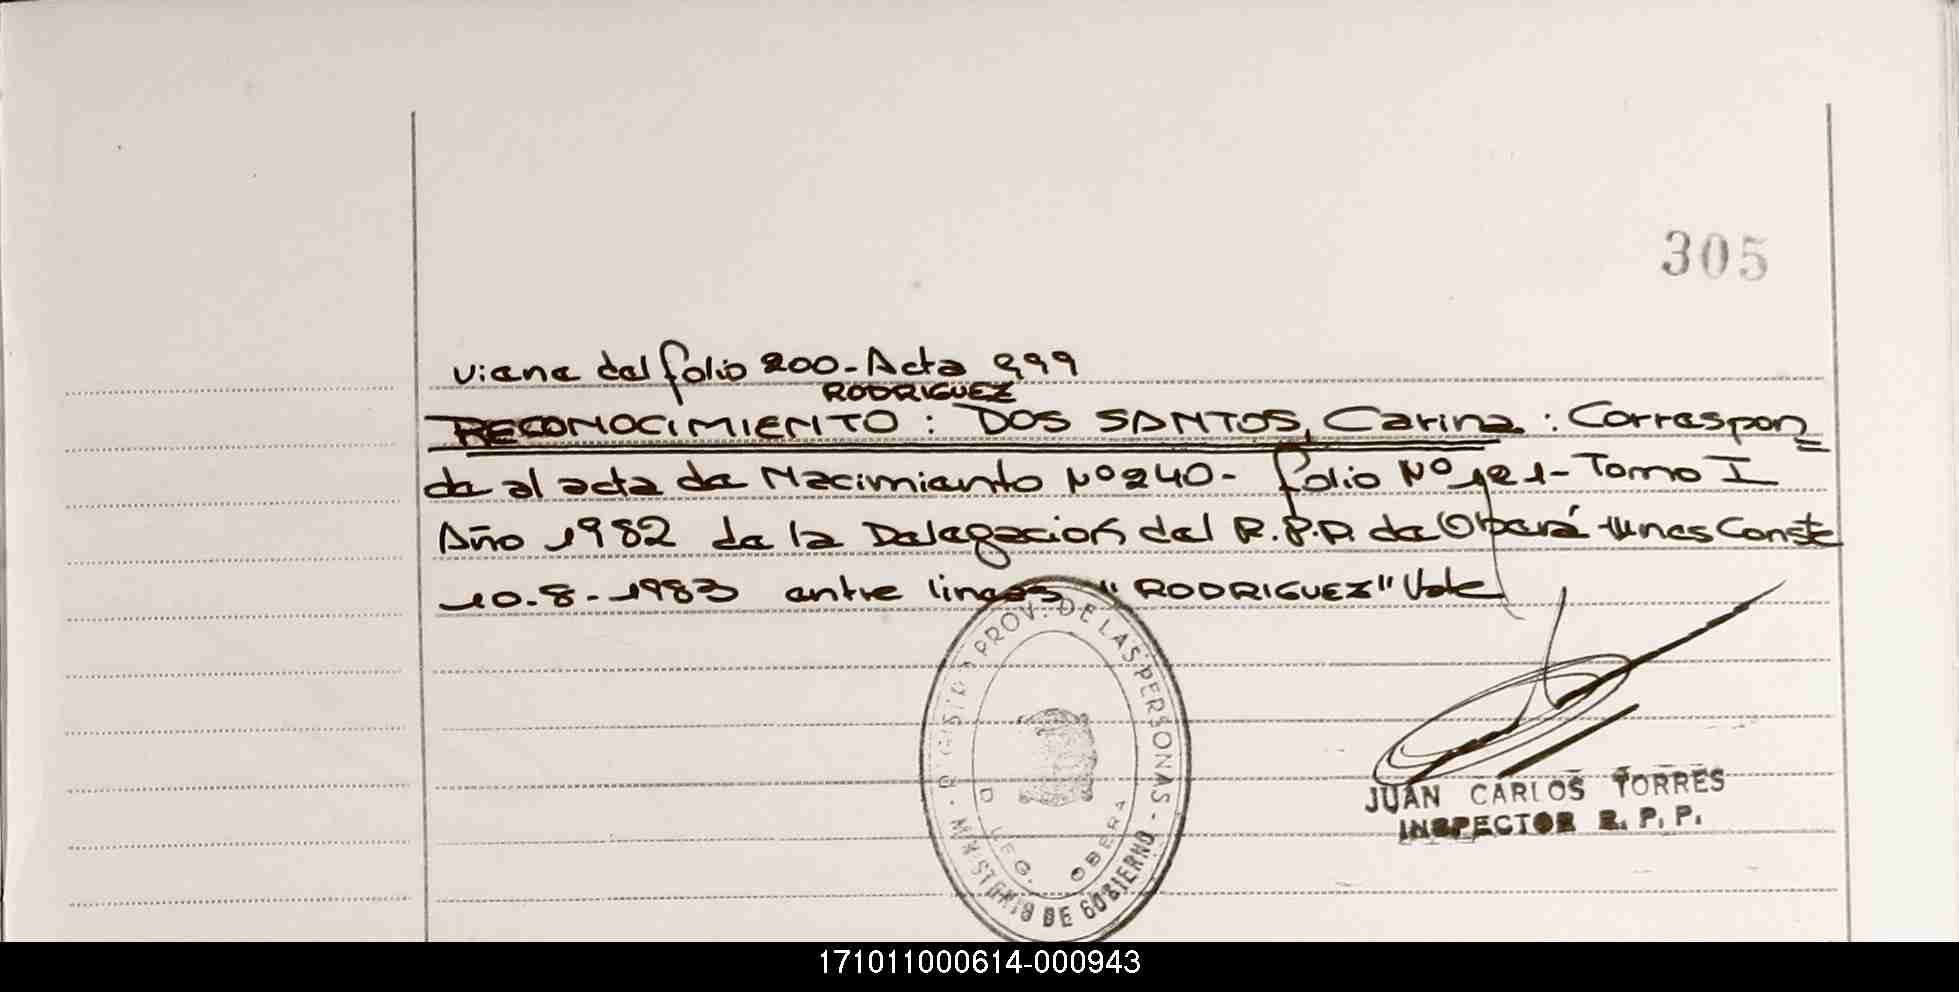 305
viene del folio 200-Acta 999
RODRIGUEZ
RECONOCIMIENTO: DOS SANTOS, Carina: Correspon=
de al acta de Nacimiento Nº 240- folio Nº 121-Tomo I
Año 1982 de la Delegación del R.P.P. de Oberá Mnes Conste
10.8.-1983 entre lineas "RODRIGUEZ" Vale
REGISTRO PROV. DE LAS PERSONAS - MINISTERIO DE GOBIERNO
DELEG. OBERA
JUAN CARLOS TORRES
INSPECTOR R. P. P.
171011000614-000943